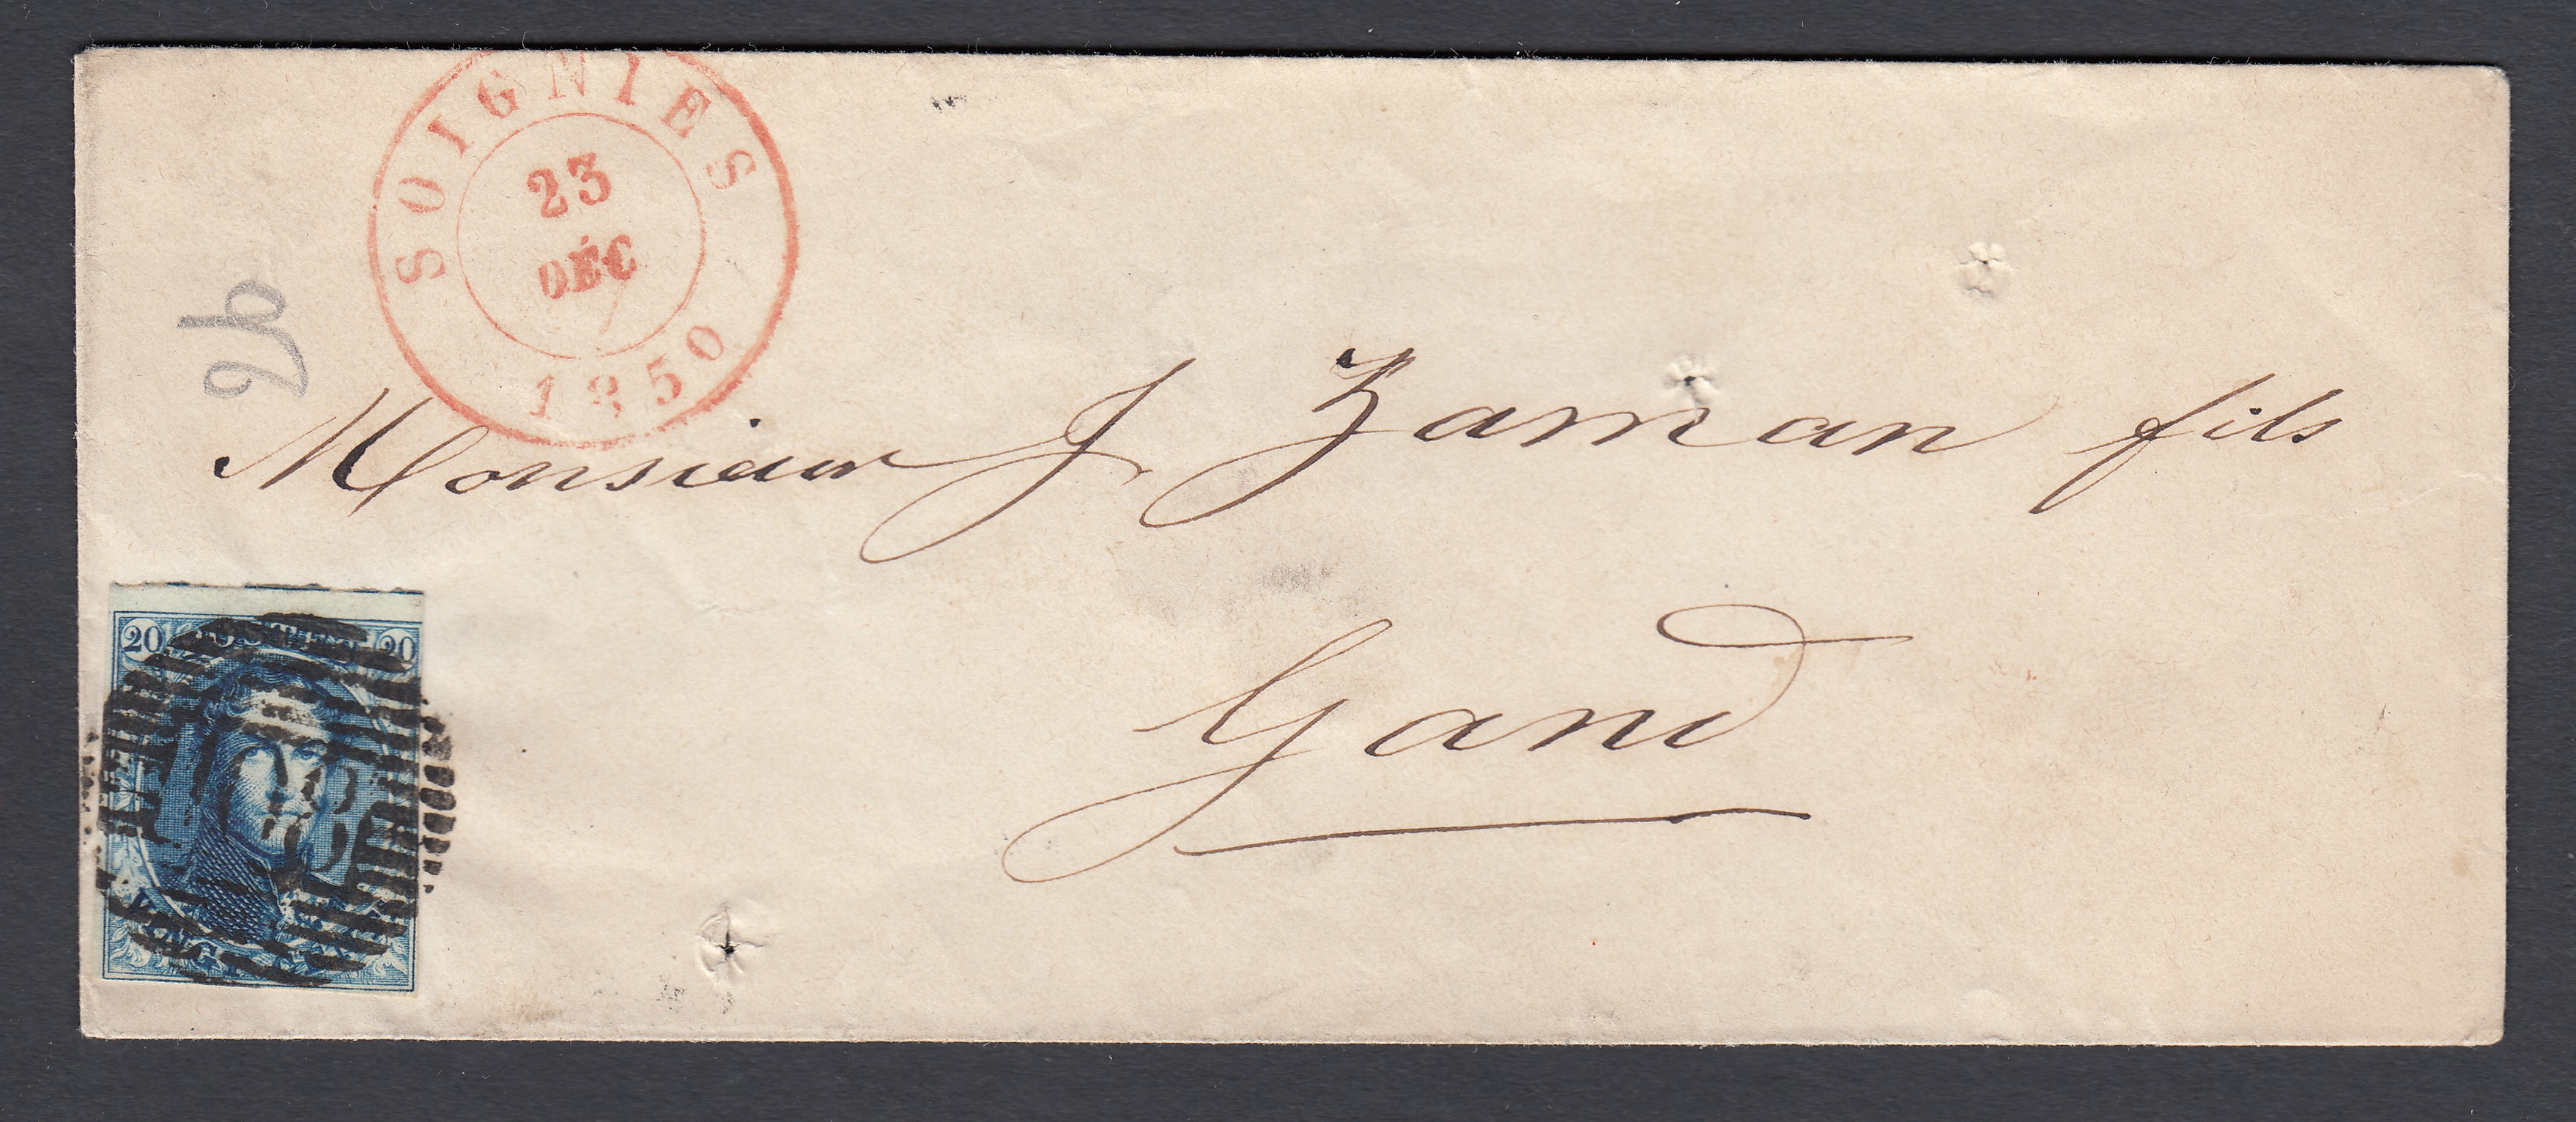 SOIGNIES
23
DÉC
1850
2b
Monsieur J Zaman fils
Gand
20 POSTES 20
VINGT CENT